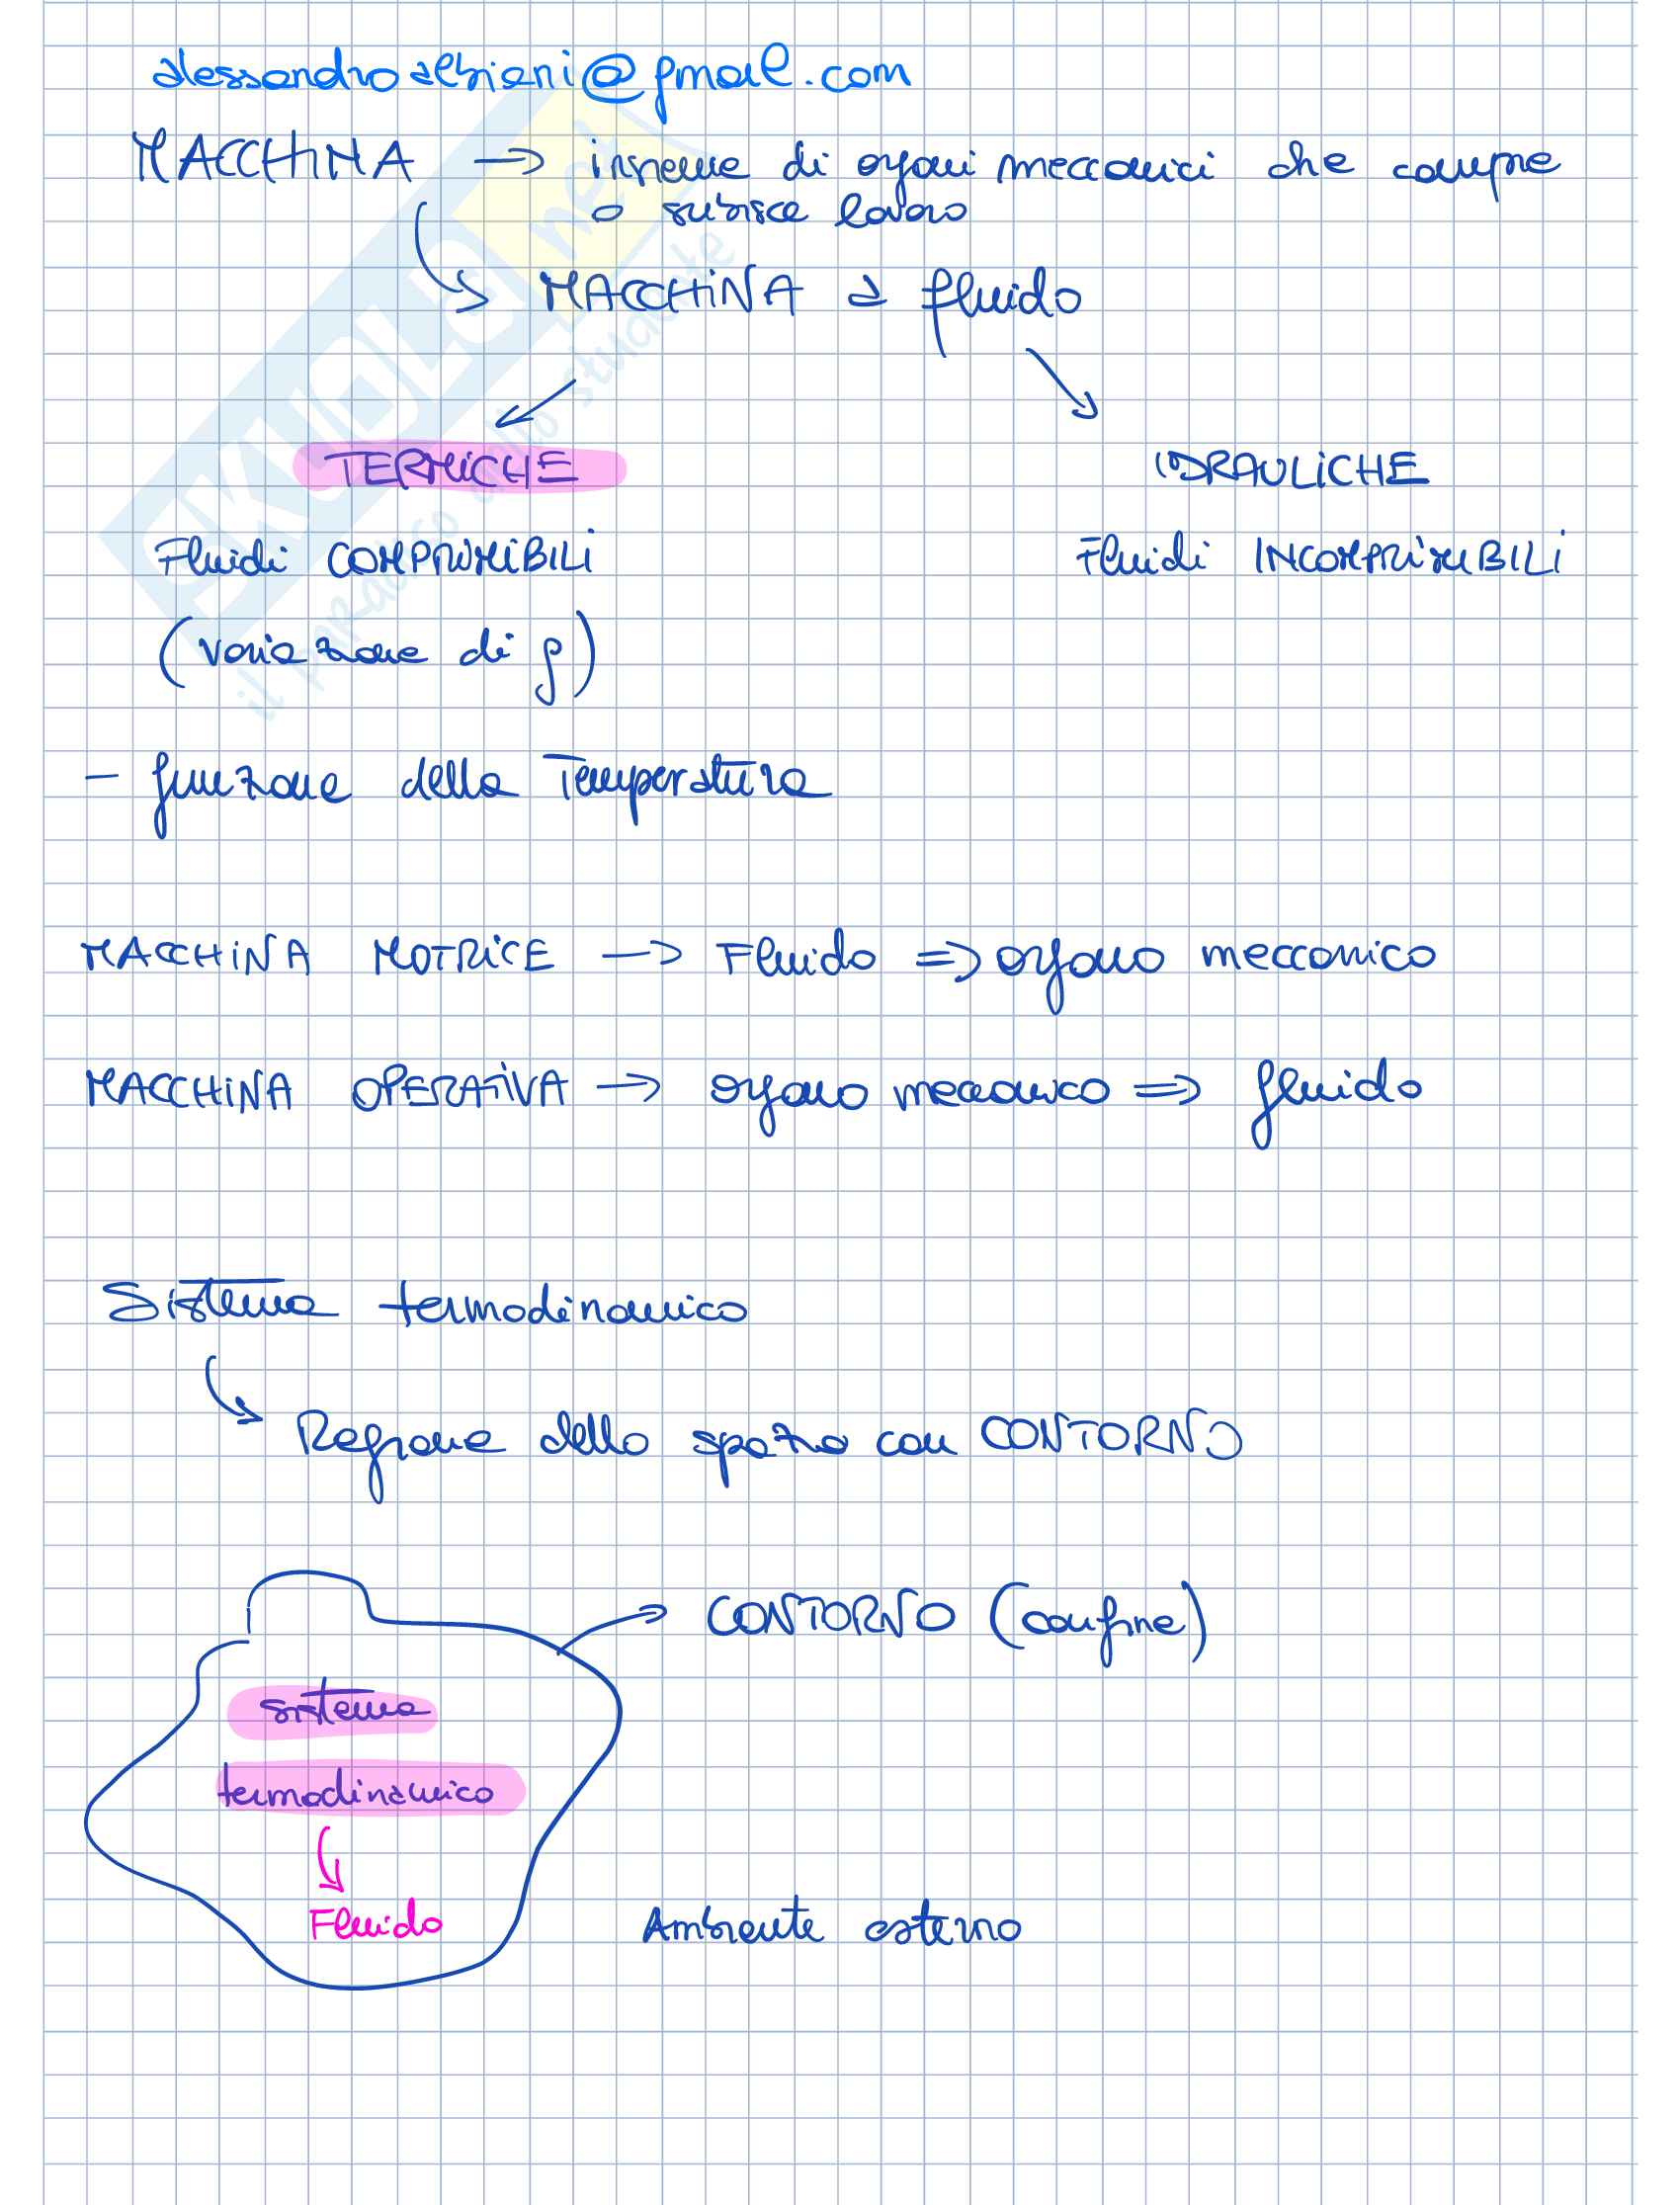 alessandroalbiani@gmail.com
MACCHINA → insieme di organi meccanici che compie
o subisce lavoro
MACCHINA a fluido
TERMICHE IDRAULICHE
Fluidi COMPRIMIBILI Fluidi INCOMPRIMIBILI
(variazione di ρ)
- funzione della Temperatura
MACCHINA MOTRICE → Fluido ⇒ organo meccanico
MACCHINA OPERATIVA → organo meccanico ⇒ fluido
Sistema termodinamico
Regione dello spazio con CONTORNO
CONTORNO (confine)
sistema
termodinamico
Fluido
Ambiente esterno
SKUOLA.net
il paradiso dello studente